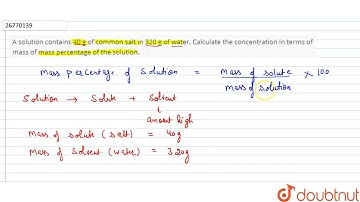 26770139
A solution contains 40 g of common salt in 320 g of water. Calculate the concentration in terms of
mass of mass percentage of the solution.
Mass percentage of Solution = Mass of solute × 100
Mass of solution
Solution → Solute + Solvent
↓
amount high
Mass of solute (salt) = 40g
Mass of Solvent (water) = 320g
doubtnut